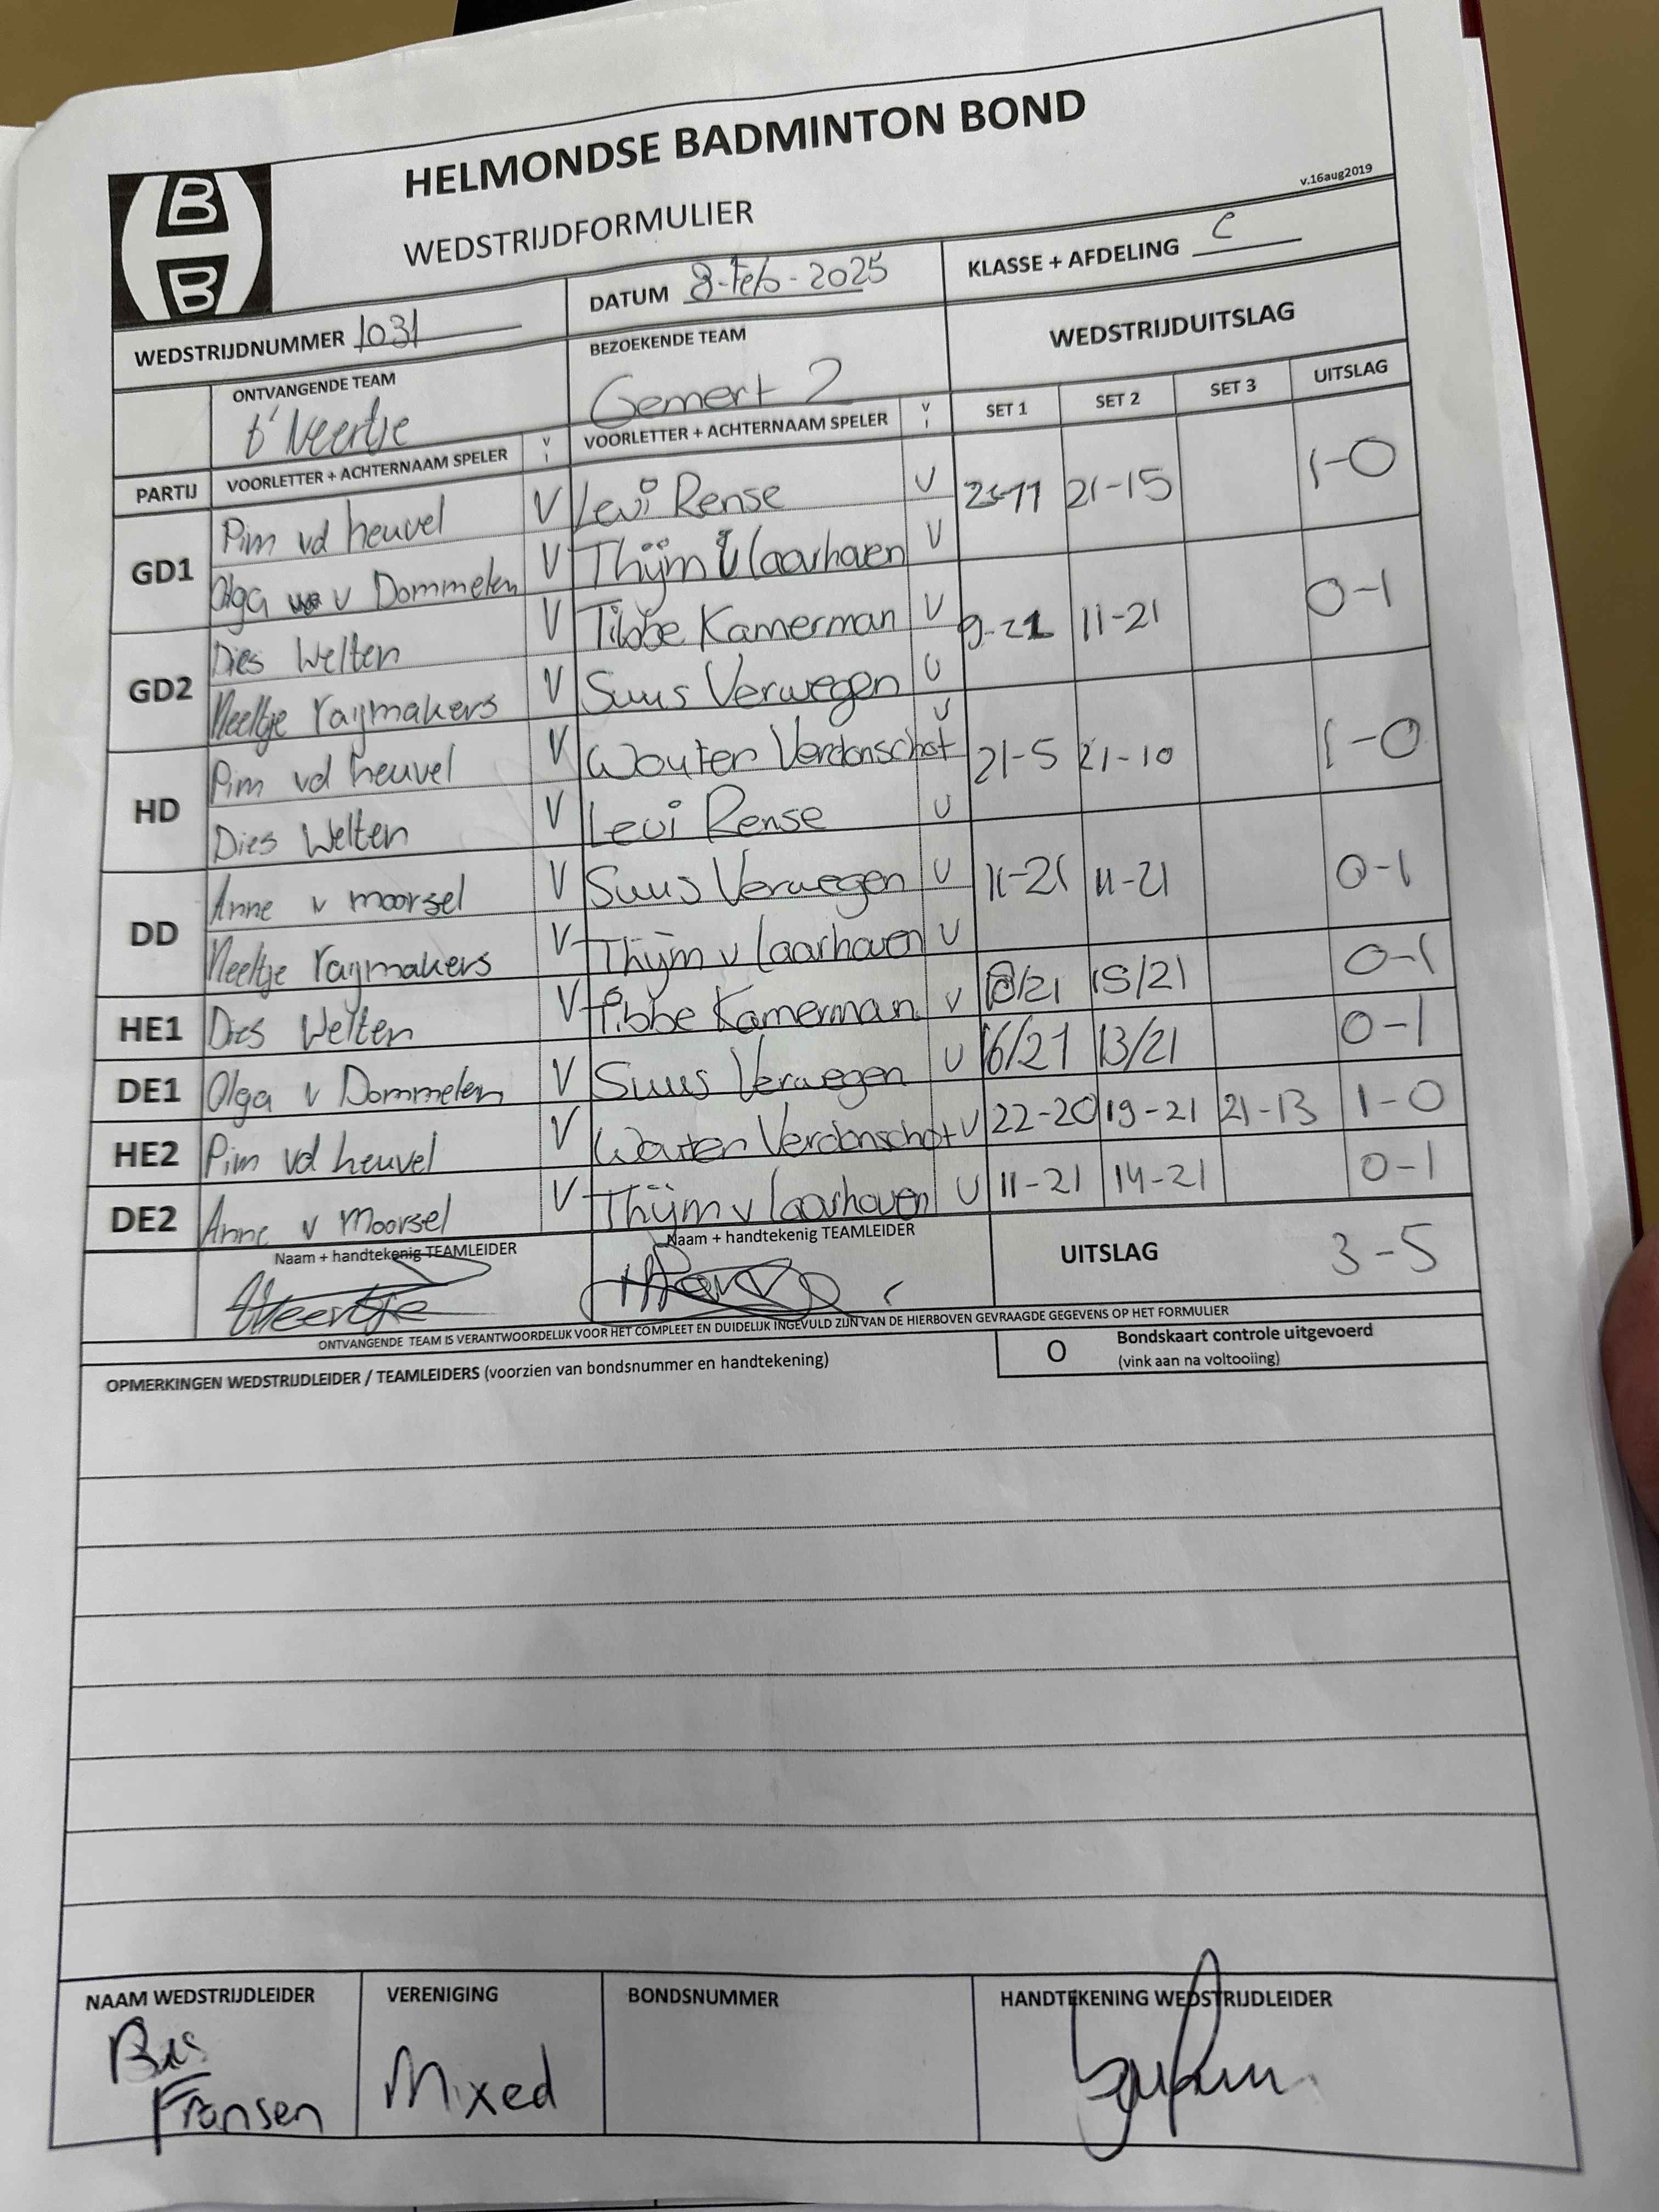 HELMONDSE BADMINTON BOND
WEDSTRIJDFORMULIER
v.16aug2019
B
B
WEDSTRIJDNUMMER 1031
DATUM 8-Feb-2025
KLASSE + AFDELING C
ONTVANGENDE TEAM
t' Veertje
BEZOEKENDE TEAM
Gemert 2
WEDSTRIJDUITSLAG
PARTIJ VOORLETTER + ACHTERNAAM SPELER V I VOORLETTER + ACHTERNAAM SPELER V I SET 1 SET 2 SET 3 UITSLAG
GD1 Pim vd heuvel V Levi Rense V 21-15 1-0
Olga v Dommelen V Thijm v Laarhoven V
GD2 Dies Welten V Tibbe Kamerman V 9-21 11-21 0-1
Neeltje raijmakers V Suus Verwegen V
HD Pim vd heuvel V Wouter Verdonschot V 21-5 21-10 1-0
Dies Welten V Levi Rense V
DD Anne v moorsel V Suus Verwegen V 11-21 11-21 0-1
Neeltje raijmakers V Thijm v Laarhoven V
HE1 Dies Welten V Tibbe Kamerman V 15/21 0-1
DE1 Olga v Dommelen V Suus Verwegen V 6/21 13/21 0-1
HE2 Pim vd heuvel V Wouter Verdonschot V 22-20 19-21 21-13 1-0
DE2 Anne v Moorsel V Thijm v Laarhoven V 11-21 14-21 0-1
Naam + handtekenig TEAMLEIDER
Naam + handtekenig TEAMLEIDER
UITSLAG 3-5
ONTVANGENDE TEAM IS VERANTWOORDELIJK VOOR HET COMPLEET EN DUIDELIJK INGEVULD ZIJN VAN DE HIERBOVEN GEVRAAGDE GEGEVENS OP HET FORMULIER
OPMERKINGEN WEDSTRIJDLEIDER / TEAMLEIDERS (voorzien van bondsnummer en handtekening)
O Bondskaart controle uitgevoerd
(vink aan na voltooiing)
NAAM WEDSTRIJDLEIDER
Fransen
VERENIGING
Mixed
BONDSNUMMER
HANDTEKENING WEDSTRIJDLEIDER